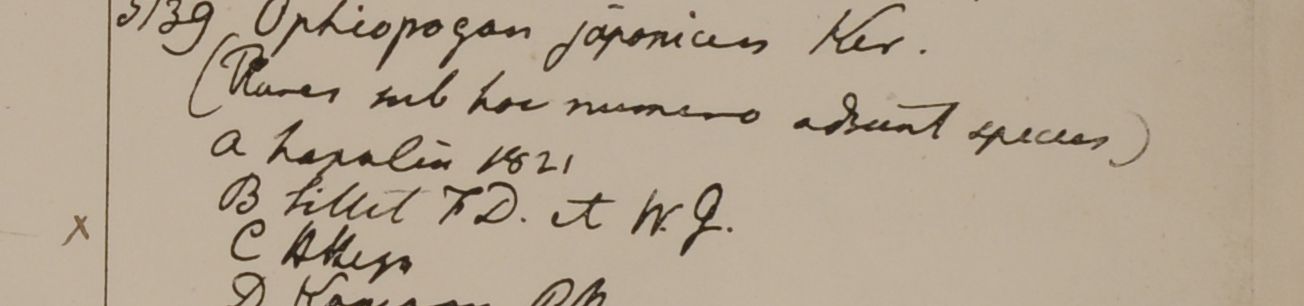 5139 Ophiopogon japonicus Ker.
(Plures sub hoc numero adsunt species)
A Napalia 1821
B Sillet F.D. et W.G.
C
D Kamaon R.B.